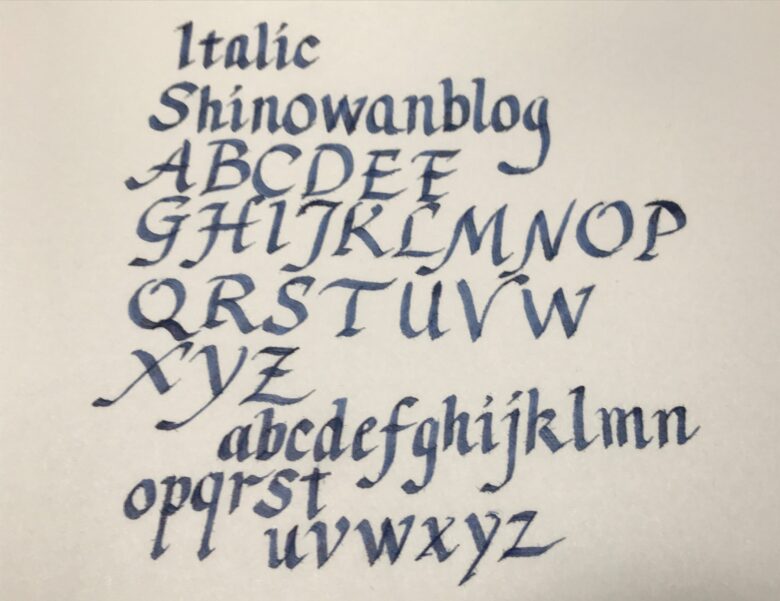 Italic
Shinowanblog
ABCDEF
GHIJKLMNOP
QRSTUVW
XYZ
abcdefghijklmn
opqrst
uvwxyz